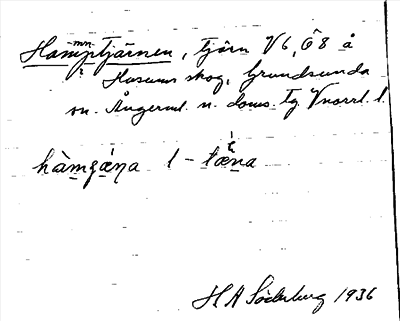 Hamptjärnen, tjärn V6, Ö8 å
mn
Husums skog, Grundsunda
sn. Ångerml. n. doms. tg Vnorrl. l.
hàmʒǽna l - tǽna
H A Söderberg 1936